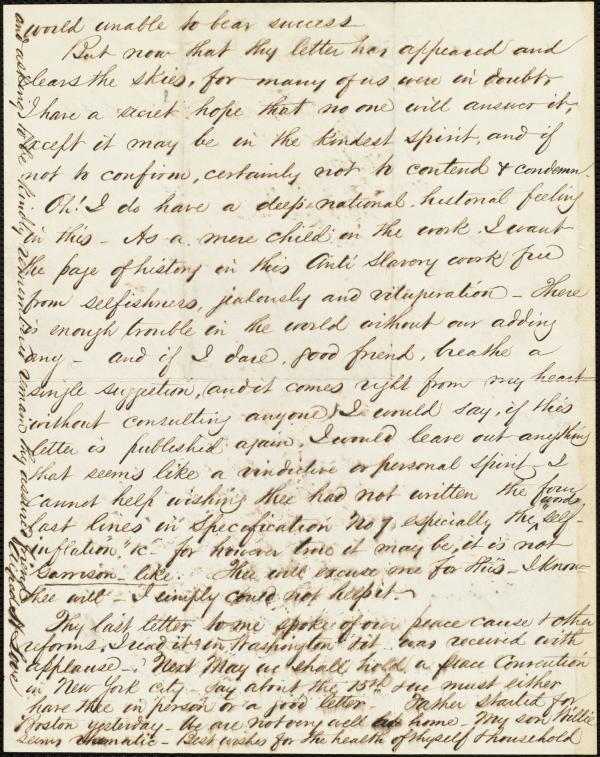 world unable to bear success
But now that thy letter has appeared and
clears the skies, for many of us were in doubt,
I have a secret hope that no one will answer it,
except it may be in the kindest spirit, and if
not to confirm, certainly not to contend & condemn.
Oh! I do have a deep national, historical feeling
in this - As a mere child in the work I want
the page of history in this Anti Slavery work free
from selfishness, jealously and vituperation - There
is enough trouble in the world without our adding
any - and if I dare, good friend, breathe a
single suggestion, (and it comes right from my heart
without consulting anyone) I would say, if this
letter is published again, I would leave out anything
that seems like a vindictive or personal spirit I
cannot help wishing thee had not written the four
last lines in Specification No 7, especially the words "self-
inflation" &c - for however true it may be, it is not
Garrison-like. Thee will excuse me for this - I know
thee will - I simply could not help it -
Thy last letter to me spoke of our peace cause & other
reforms. I read it in Washington & it was received with
applause - Next May we shall hold a Peace Convention
in New York city - say about the 15th & we must either
have thee in person or a good letter - Father started for
Boston yesterday - We are not very well at home - My son Willie
seems rheumatic - Best wishes for the health of thyself & household
and asking to be kindly remembered remain thy assured friend
Alfred H Love